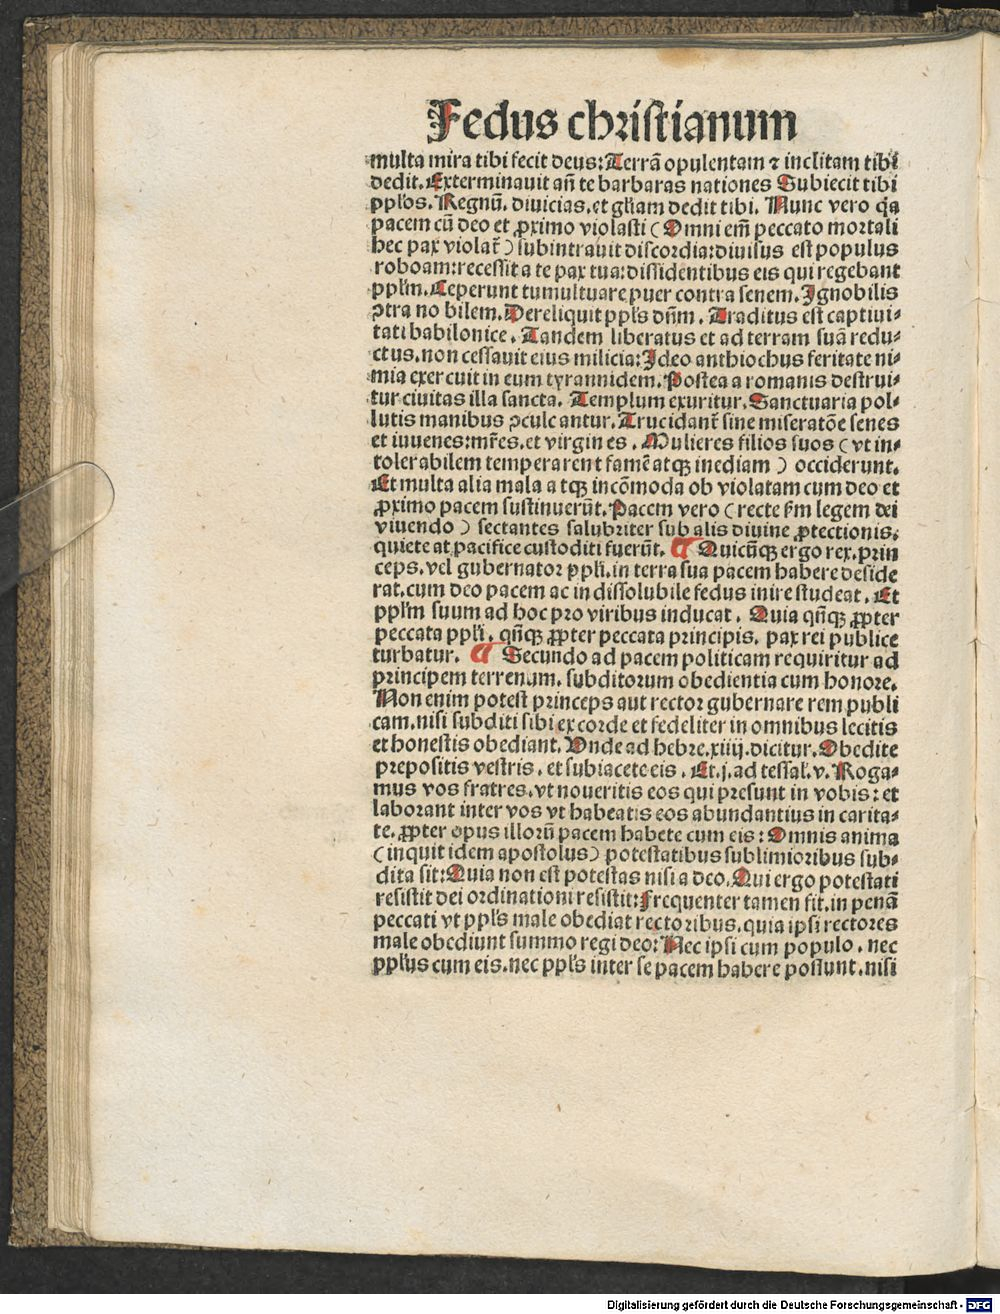 Fedus christianum
multa mira tibi fecit deus: Terrã opulentam ⁊ inclitam tibi
dedit. Exterminauit añ te barbaras nationes Subiecit tibi
pplos. Regnũ. diuicias. et gliam dedit tibi. Nunc vero q̃a
pacem cũ deo et ꝓximo violasti (Omni em̃ peccato mortali
hec pax violat᷑) subintrauit discordia: diuisus est populus
roboam: recessit a te pax tua: dissidentibus eis qui regebant
pplm. Ceperunt tumultuare puer contra senem. Ignobilis
ↄtra no bilem. Dereliquit ppls dñm. Traditus est captiui⸗
tati babilonice. Tandem liberatus et ad terram suã redu⸗
ctus. non cessauit eius milicia: Ideo anthiochus feritate ni⸗
mia exercuit in eum tyrannidem. Postea a romanis destrui⸗
tur ciuitas illa sancta. Templum exuritur. Sanctuaria pol⸗
lutis manibus ↄculcantur. Trucidant᷑ sine miseratõe senes
et iuuenes: mr̃es. et virgines. Mulieres filios suos (vt in⸗
tolerabilem temperarent famẽ atqꝫ inediam) occiderunt.
Et multa alia mala atqꝫ incõmoda ob violatam cum deo et
ꝓximo pacem sustinuerũt. Pacem vero (recte ẞm legem dei
viuendo) sectantes salubriter sub alis diuine ꝓtectionis.
quiete at pacifice custoditi fuerũt. ¶ Quicũqꝫ ergo rex. prin
ceps. vel gubernator ppli. in terra sua pacem habere deside
rat. cum deo pacem ac indissolubile fedus inire studeat. Et
pplm suum ad hoc pro viribus inducat. Quia qñqꝫ ꝓpter
peccata ppli. qñqꝫ ꝓpter peccata principis. pax rei publice
turbatur. ¶ Secundo ad pacem politicam requiritur ad
principem terrenum. subditorum obedientia cum honore.
Non enim potest princeps aut rector gubernare rem publi
cam. nisi subditi sibi ex corde et fedeliter in omnibus lecitis
et honestis obediant. Vnde ad hebre. xiiij. dicitur. Obedite
prepositis vestris. et subiacete eis. Et. j. ad tessal. v. Roga⸗
mus vos fratres. vt noueritis eos qui presunt in vobis: et
laborant inter vos vt habeatis eos abundantius in carita⸗
te. ꝓpter opus illorũ pacem habete cum eis: Omnis anima
(inquit idem apostolus) potestatibus sublimioribus sub⸗
dita sit: Quia non est potestas nisi a deo. Qui ergo potestati
resistit dei ordinationi resistit: Frequenter tamen fit. in penã
peccati vt ppls male obediat rectoribus. quia ipsi rectores
male obediunt summo regi deo: Nec ipsi cum populo. nec
pplus cum eis. nec ppls inter se pacem habere possunt. nisi
Digitalisierung gefördert durch die Deutsche Forschungsgemeinschaft - DFG